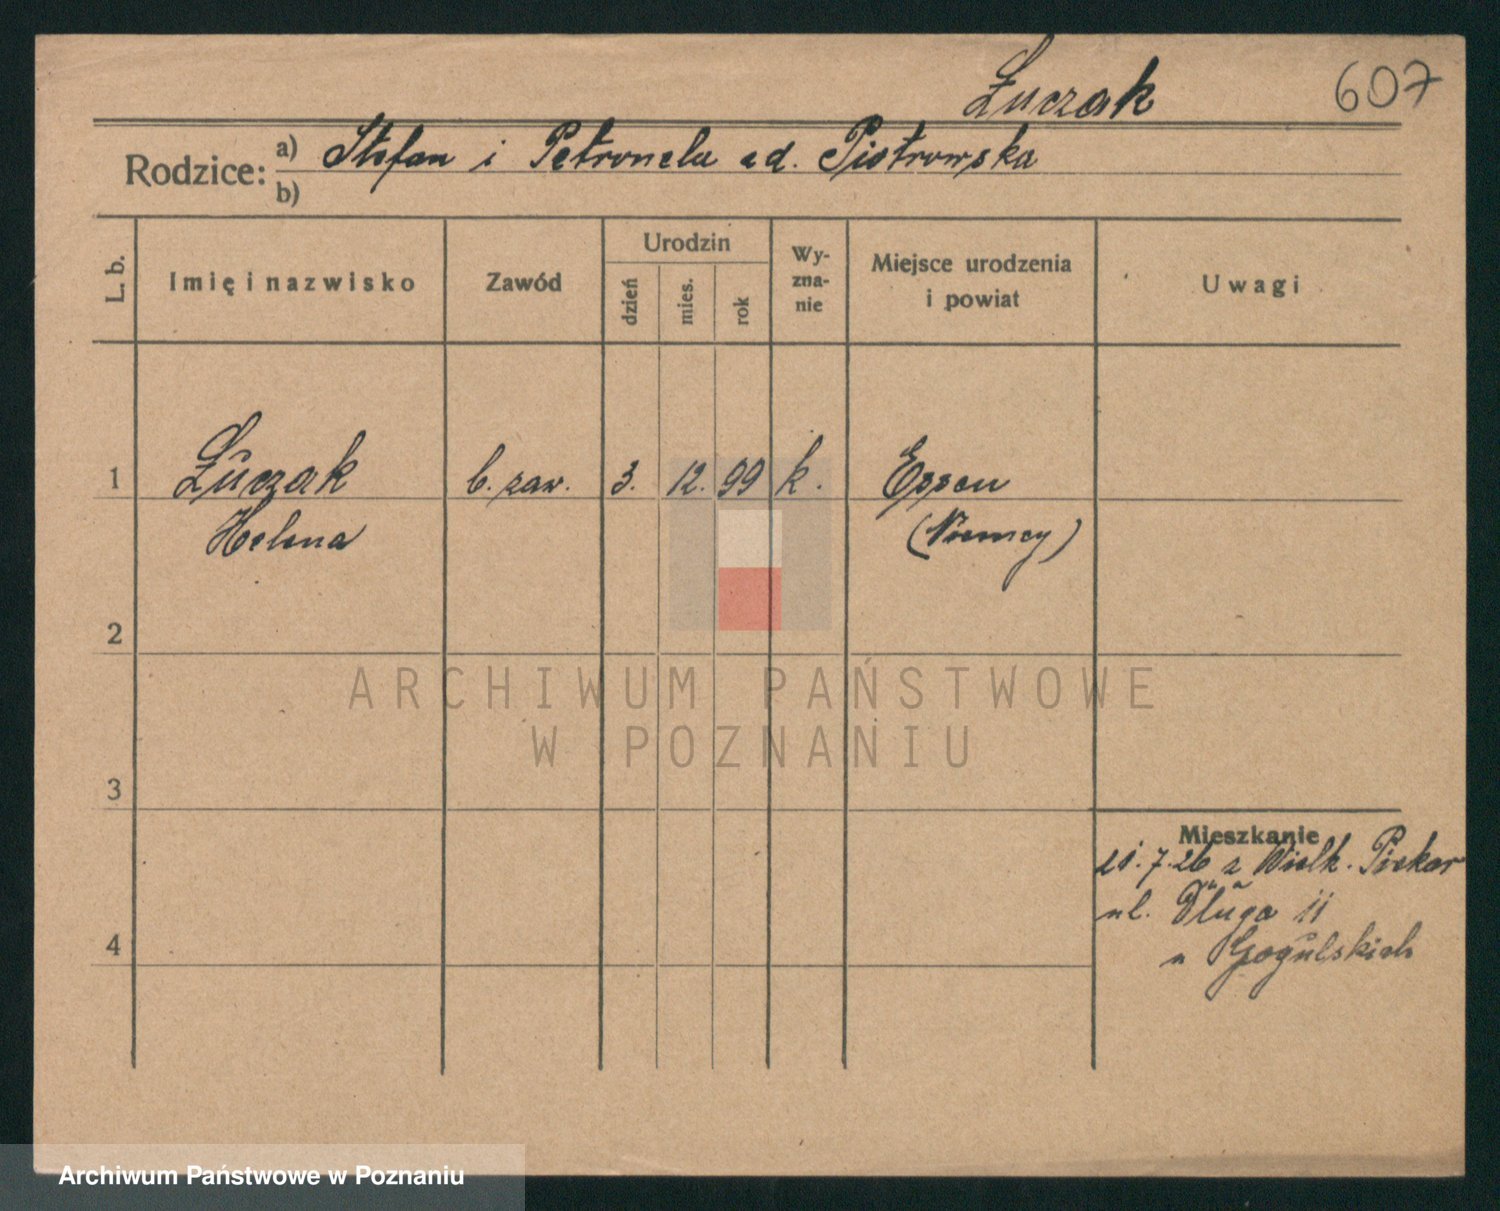 Łuczak 607
Rodzice: a) Stefan i Petronela zd. Piotrowska
b)
L. b. Imię i nazwisko Zawód Urodzin Wy-zna-nie Miejsce urodzenia i powiat Uwagi
dzień mies. rok
1 Łuczak b. zaw. 3. 12. 99 k. Essen
Helena (Niemcy)
2
ARCHIWUM PAŃSTWOWE
W POZNANIU
3
Mieszkanie
21.7.26 z Wielk. Piekar
ul. Długa 11
4
u Gogulskich
Archiwum Państwowe w Poznaniu